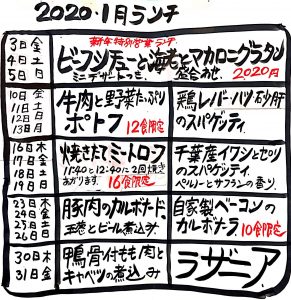 2020・1月ランチ
3日金
4日土
5日日
新年特別営業ランチ
ビーフシチューと海老とマカロニグラタン
ミニデザートつき。
2020円
10日金
11日土
12日日
13日月
牛肉と野菜たっぷり
ポトフ 12食限定
鶏レバー・ハツ・砂肝
のスパゲッティ
16日木
17日金
18日土
19日日
焼きたてミートローフ
11:40と12:40に2回焼き
あがります。16食限定
千葉産イワシとセリ
のスパゲティ
ペルノーとサフランの香り
23日木
24日金
25日土
26日日
豚肉のカルボナード、
玉巻とビール煮込み
自家製ベーコンの
カルボナーラ 10食限定
30日木
31日金
鴨骨付もも肉と
キャベツの煮込み
ラザニア